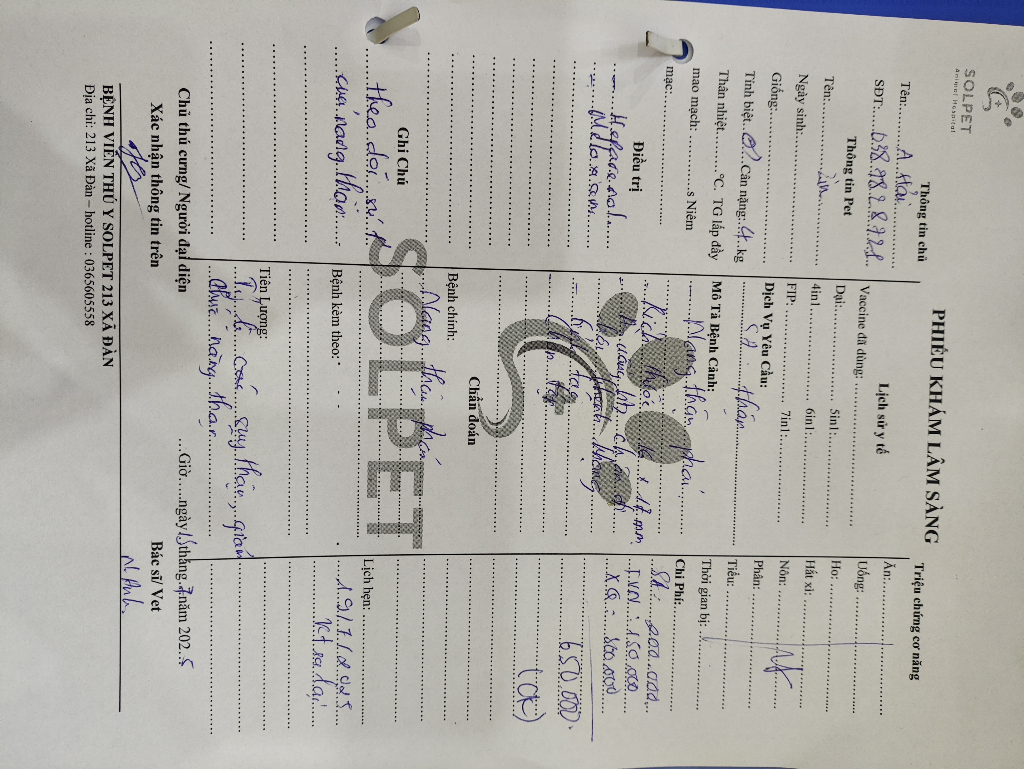 SOLPET
Animal Hospital
PHIẾU KHÁM LÂM S�àNG
Thông tin chủ
Tên: A. Hải
SĐT: 038.982.8728
Thông tin Pet
Tên:
Ngày sinh:
Giống:
Tính biệt Cân nặng: 4 kg
Thân nhiệt °C. TG lấp đầy
mao mạch: s Niêm
mạc:
Điều trị
- Heparenol.
- Meloxicam.
Ghi Chú
theo dõi
của nang thận.
Lịch sử y tế
Vaccine đã dùng:
Dại: 5in1:
4in1 6in1:
FIP: 7in1:
Dịch Vụ Yêu Cầu:
SA thận
Mô Tả Bệnh Cảnh:
- Nang thận phải.
Kích thước 16 x 17 mm.
SOLPET
Chẩn đoán
Bệnh chính:
Nang thận phải
Bệnh kèm theo:
Tiên Lượng:
suy thận, giảm
chức năng thận.
Triệu chứng cơ năng
Ăn:
Uống:
Ho:
Hắt xì:
Nôn:
Phân:
Tiểu:
Thời gian bị:
Chi Phí:
SA: 200.000
150.000
XQ: 300.000
650.000
(CK)
Lịch hẹn:
19/7/2025
KT sa lại
Giờ ngày 13 tháng 7 năm 2025
Chủ thú cưng/ Người đại diện
Xác nhận thông tin trên
Bác sĩ/ Vet
N. Anh.
BỆNH VIỆN THÚ Y SOLPET 213 XÃ ĐÀN
Địa chỉ: 213 Xã Đàn – hotline : 0365605558